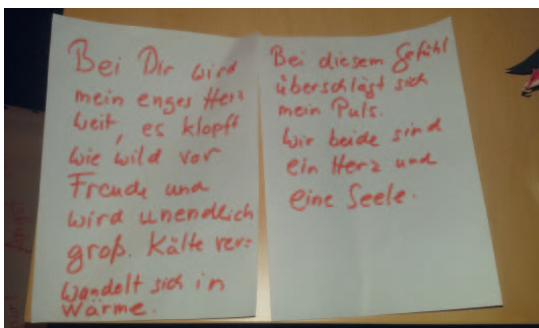 Bei Dir wird
mein enges Herz
weit, es klopft
wie wild vor
Freude und
wird unendlich
groß. Kälte ver=
wandelt sich in
Wärme.
Bei diesem Gefühl
überschlägt sich
mein Puls.
Wir beide sind
ein Herz und
eine Seele.